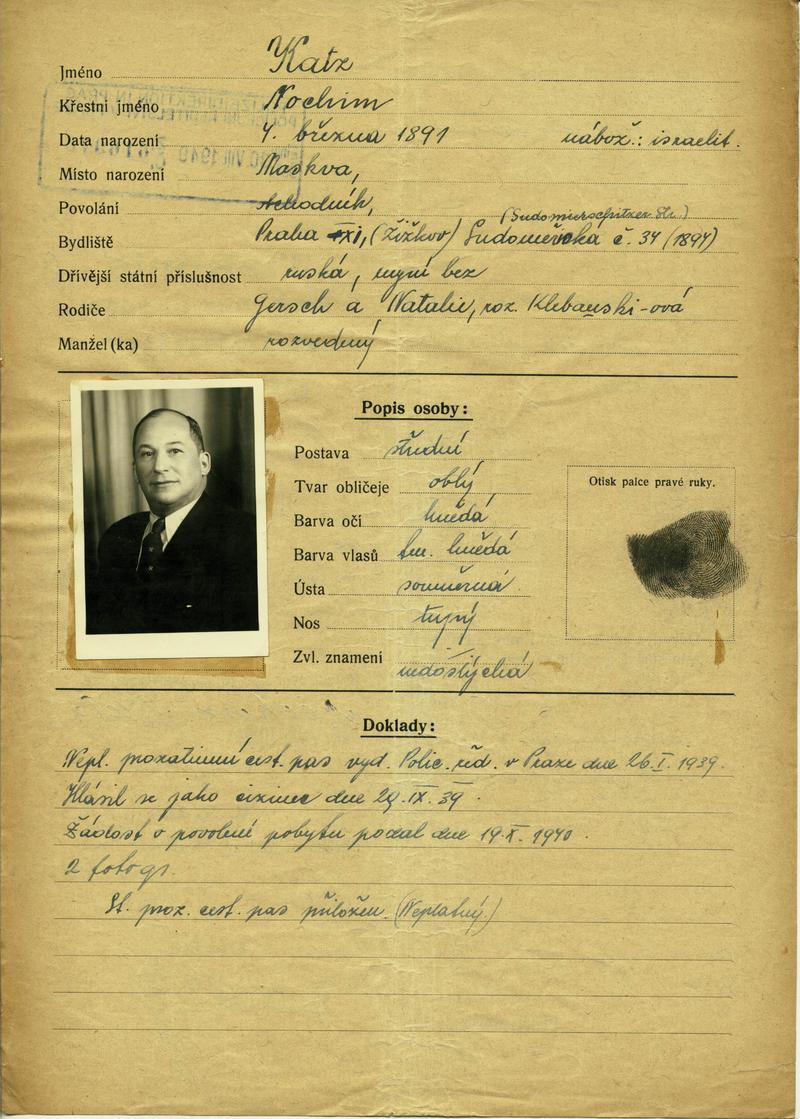 Jméno Katz
Křestní jméno Nochim
Data narození 4. března 1891 nábož.: israelit.
Místo narození Moskva,
Povolání obchodník,
(Sudomierschitzer Str.)
Bydliště Praha XI, (Žižkov) Sudoměřská č. 34 (1894)
Dřívější státní příslušnost ruská, nyní bez
Rodiče Gersch a Natalie, roz. Klebanski-ová
Manžel (ka) rozvedený
Popis osoby:
Postava střední
Tvar obličeje oblý
Barva očí hnědá
Barva vlasů tm. hnědá
Ústa souměrná
Nos tupý
Zvl. znamení nedoslýchá
Otisk palce pravé ruky.
Doklady:
Nepl. prozatimní cest. pas vyd. Polic. řed. v Praze dne 26.I.1939.
Hlásil se jako cizinec dne 29.IX.39.
Žádost o povolení pobytu podal dne 19.X.1940.
2 fotogr.
St. proz. cest. pas přiložen. (Neplatný.)